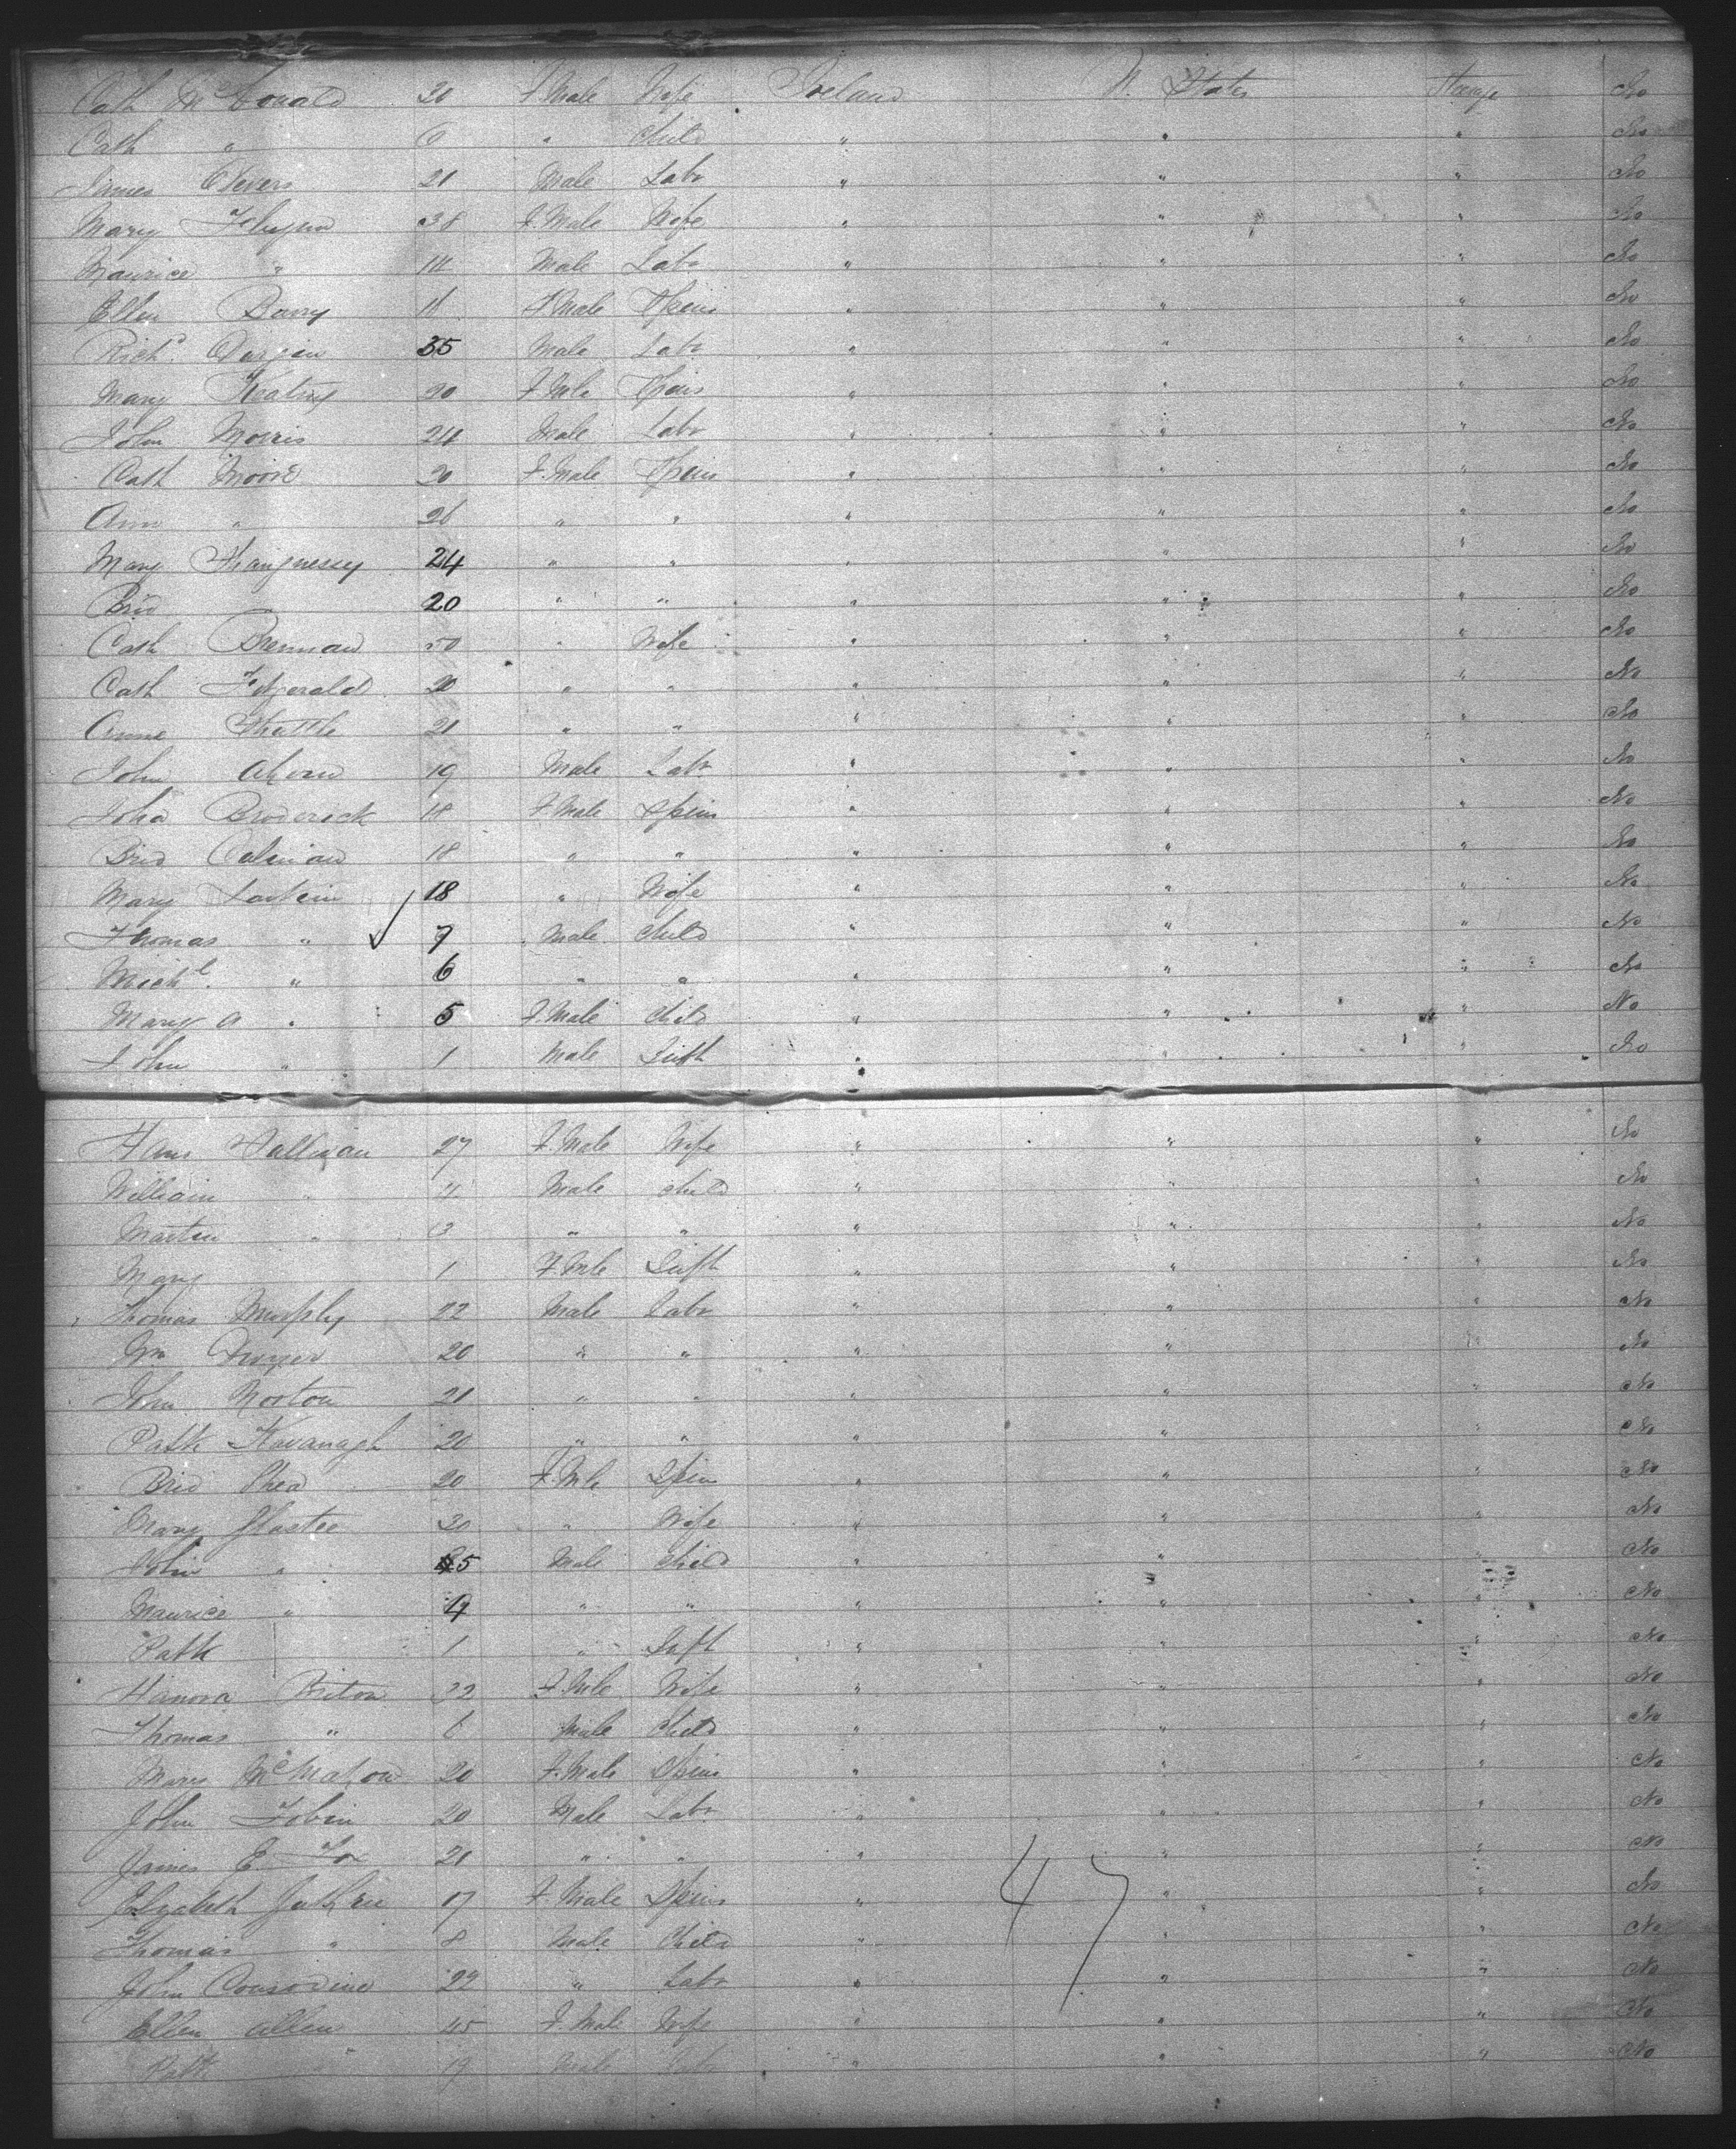 Cath McDonald 20 F.Male Wife Ireland U. States Steerage No
Cath " 6 " Child " " " No
James 21 Male Labr " " " No
Mary 38 F.Male Wife " " " No
Maurice " 14 Male Labr " " " No
Ellen Barry 16 F.Male Spins " " " No
Richd. 35 Male Labr " " " No
Mary Keating 20 F.Male Spins " " " No
John Morris 24 Male Labr " " " No
Cath Moore 20 F.Male Spins " " " No
Ann " 26 " " " " " No
Mary Shaugnessy 24 " " " " " No
Brid 20 " " " " " No
Cath Brennan 50 " Wife " " " No
Cath Fitzgerald 20 " " " " " No
Anne Shuttle 21 " " " " " No
John Ahern 19 Male Labr " " " No
Joha Broderick 18 F.Male Spins " " " No
Brid 18 " " " " " No
Mary Larkin 18 " Wife " " " No
Thomas " 7 Male Child " " " No
Michl. " 6 " " " " " No
Mary A " 5 F.Male Child " " " No
John " 1 Male Infth " " " No
Hans Sullivan 27 F.Male Wife " " " No
William " 4 Male Child " " " No
Martin " 3 " " " " " No
Mary 1 F.Male Infth " " " No
Thomas Murphy 22 Male Labr " " " No
Wm Dwyer 20 " " " " " No
John Norton 21 " " " " " No
Patk Kavanagh 20 " " " " " No
Brid Shea 20 F.Male Spins " " " No
Mary 30 " Wife " " " No
John " 5 Male Child " " " No
Maurice " 4 " " " " " No
Patk 1 " Infth " " " No
Hanora 32 F.Male Wife " " " No
Thomas " 6 Male Child " " " No
Mary McMahon 20 F.Male Spins " " " No
John Tobin 20 Male Labr " " " No
James E. Fox 21 " " " " " No
Elizabeth Guthrie 17 F.Male Spins " 47 " " No
Thomas " 8 Male Child " " " No
John Consodine 22 " Labr " " " No
Ellen Allen 45 F.Male Wife " " " No
Patk " 19 Male Labr " " " No